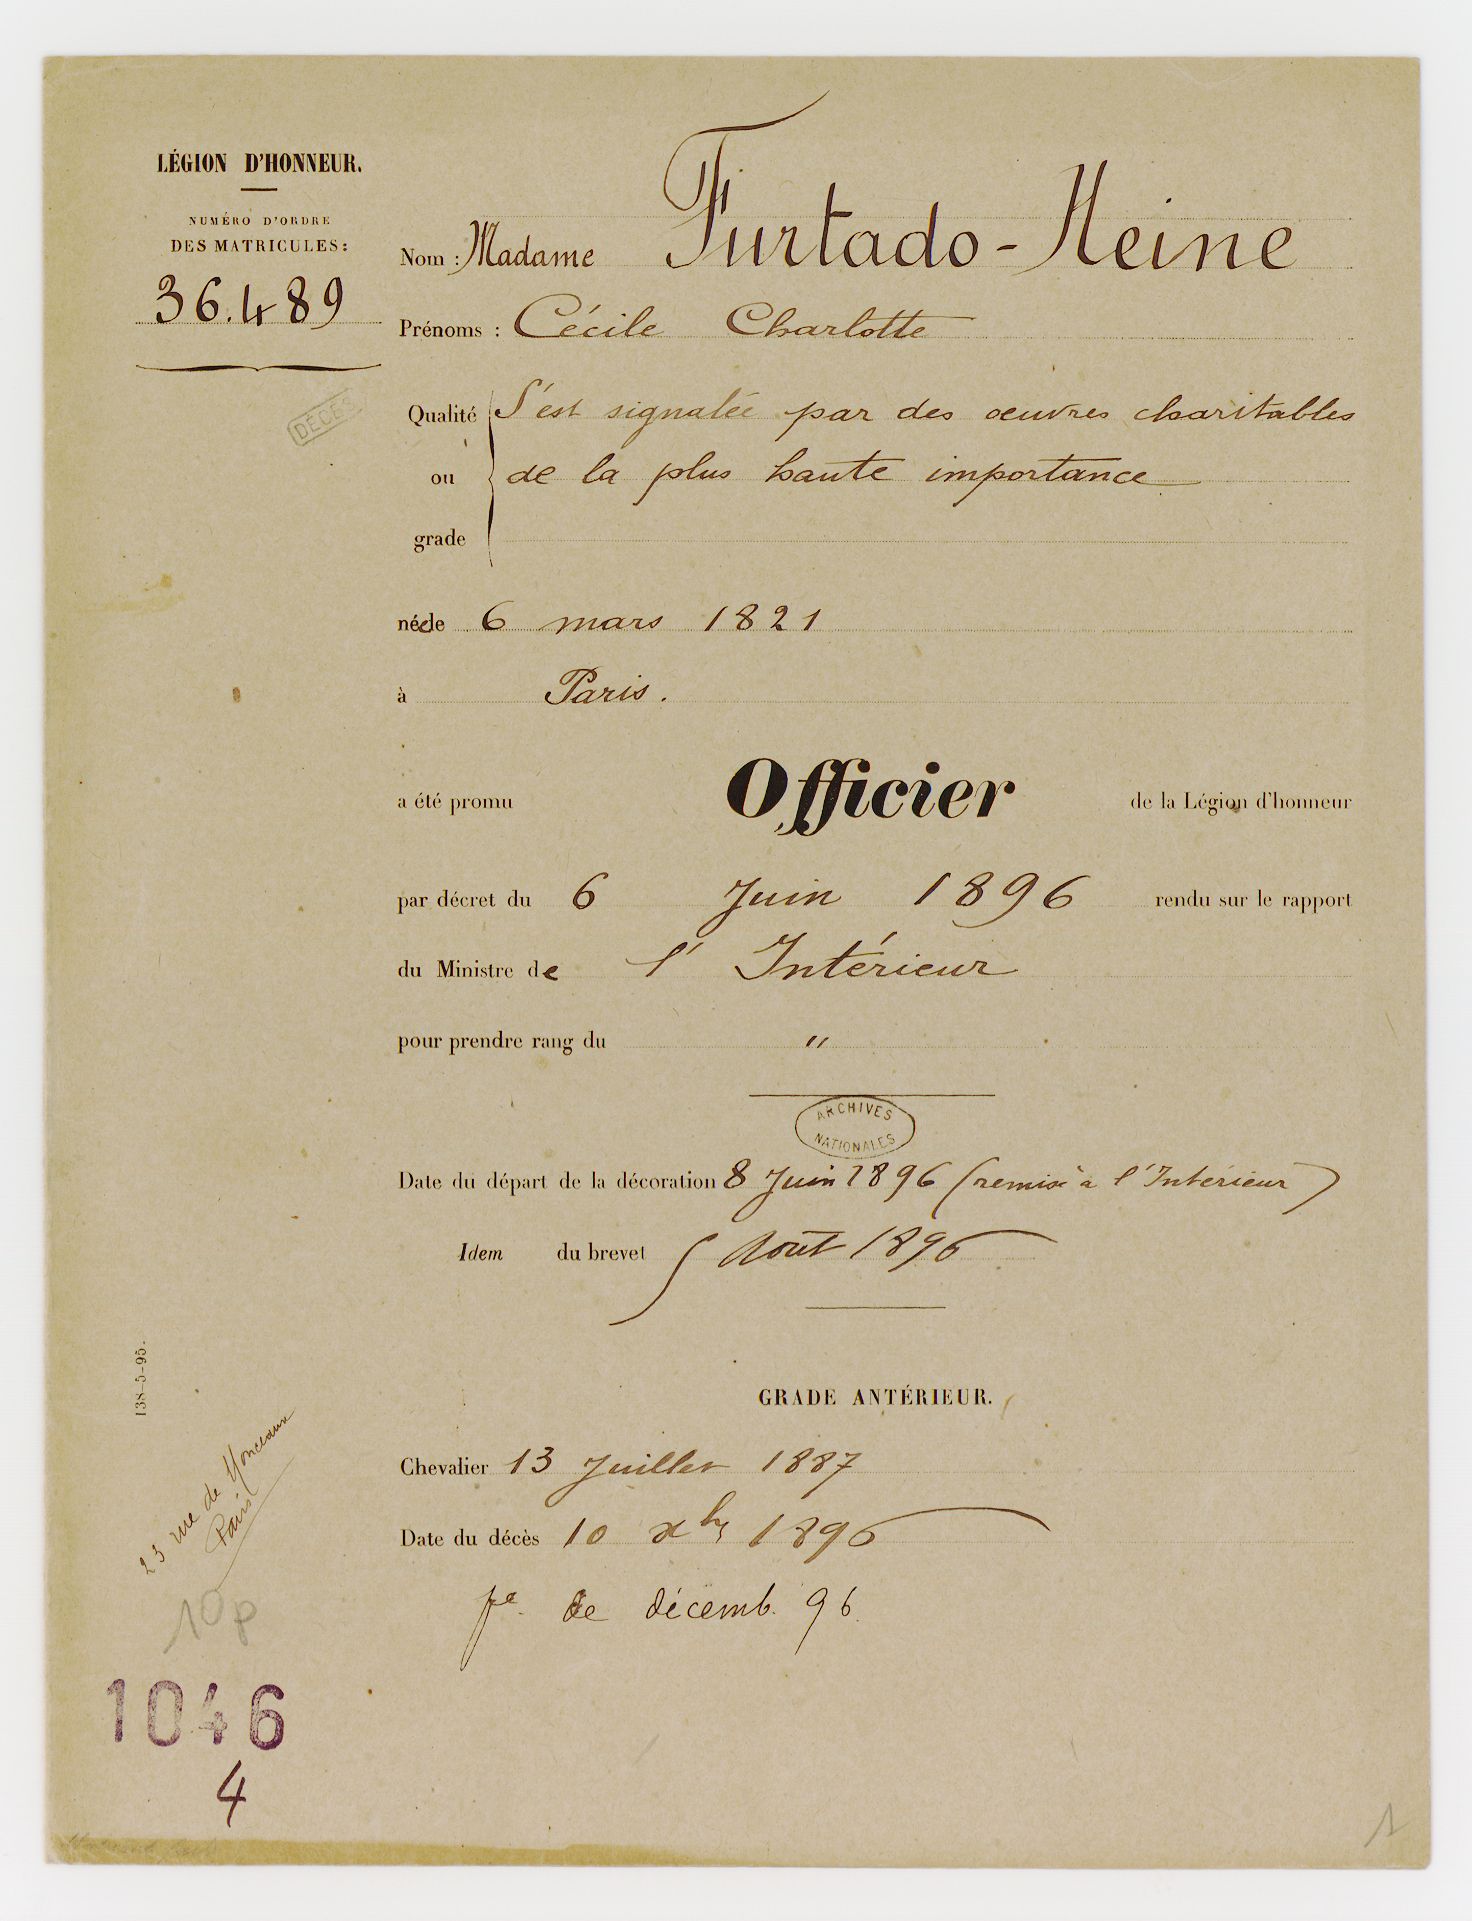 LÉGION D'HONNEUR.
NUMÉRO D'ORDRE
DES MATRICULES:
36.489
DÉCÈS
Nom : Madame Furtado-Heine
Prénoms : Cécile Charlotte
Qualité S'est signalée par des œuvres charitables
ou de la plus haute importance
grade
née le 6 mars 1821
à Paris.
a été promu Officier de la Légion d'honneur
par décret du 6 Juin 1896 rendu sur le rapport
du Ministre de l'Intérieur
pour prendre rang du "
ARCHIVES
NATIONALES
Date du départ de la décoration 8 Juin 1896 (remise à l'Intérieur)
Idem du brevet 5 Août 1896
GRADE ANTÉRIEUR.
Chevalier 13 Juillet 1887
Date du décès 10 xbre 1896
pe de décemb. 96.
138-5-95.
23 rue de Monceaux
Paris
10 p
1046
4
1